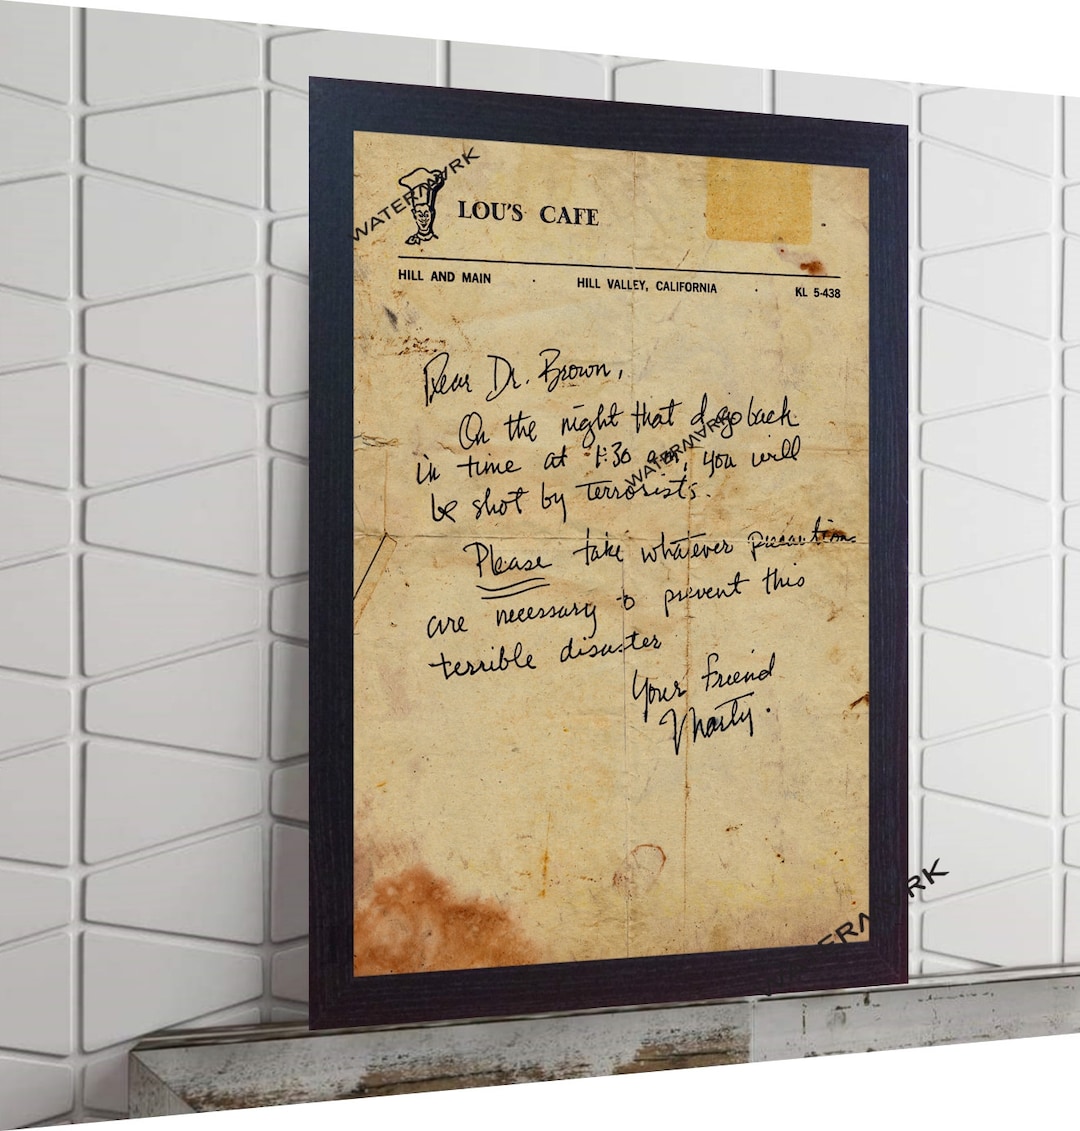 WATERMARK
LOU'S CAFE
HILL AND MAIN · HILL VALLEY, CALIFORNIA · KL 5-438
Dear Dr. Brown,
On the night that I go back
in time at 1:30 a.m., you will
be shot by terrorists.
WATERMARK
Please take whatever precautions
are necessary to prevent this
terrible disaster
Your friend
Marty.
ERM RK